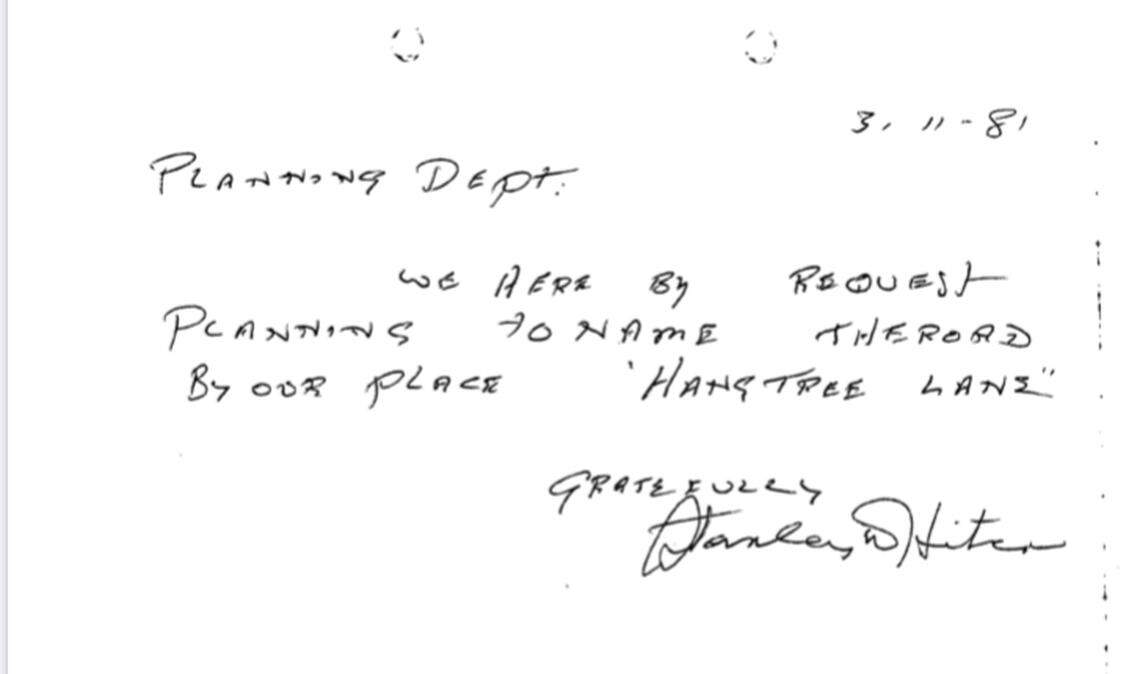 3. 11 - 81
PLANNING DEPT.
WE HERE BY REQUEST
PLANNING TO NAME THEROAD
BY OUR PLACE 'HANGTREE LANE"
GRATEFULLY
Stanley D